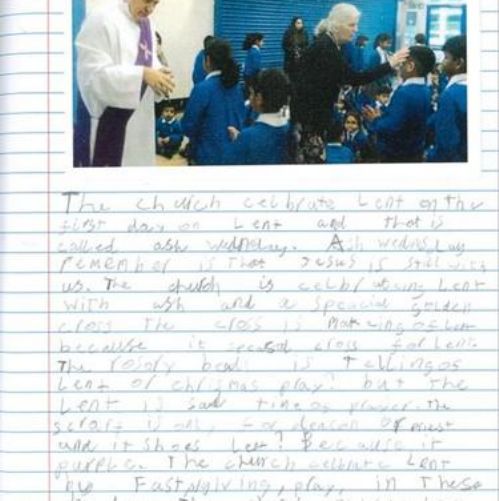 The church celbrate Lent on the
first day on Lent and that is
called ash wednesday. Ash wednesday
remember is that Jesus is still with
us. The church is celbrating Lent
with ash and a speacial golden
cross the cross is of
because it cross for Lent.
The rosory is tellingos
Lent or chrismas play? but the
Lent is sad time of prayer. The
scraf is only for deacon or priest
and it shoes Lent? Because it
purple. The church celbrate Lent
by Fast, giving, pray, in These